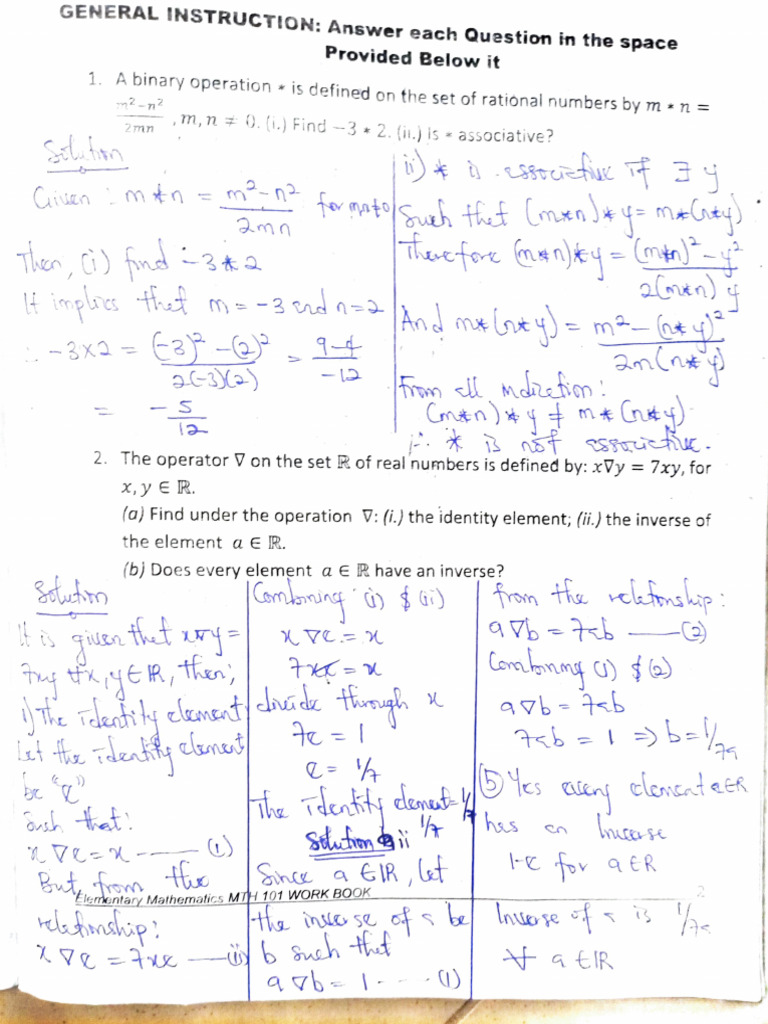 GENERAL INSTRUCTION: Answer each Question in the space
Provided Below it
1. A binary operation * is defined on the set of rational numbers by m * n =
m²−n² / 2mn , m, n ≠ 0. (i.) Find −3 * 2. (ii.) Is * associative?
Solution
Given : m * n = m² − n² / 2mn for m,n≠0
Then, (i) find −3 * 2
It implies that m = −3 and n = 2
∴ −3 × 2 = (−3)² − (2)² / 2(−3)(2) = 9−4 / −12
= −5/12
ii) * is associative if ∃ y
Such that (m*n)*y = m*(n*y)
Therefore (m*n)*y = (m*n)² − y² / 2(m*n) y
And m*(n*y) = m² − (n*y)² / 2m(n*y)
From all indication:
(m*n)*y ≠ m*(n*y)
∴ * is not associative.
2. The operator ∇ on the set ℝ of real numbers is defined by: x∇y = 7xy, for
x, y ∈ ℝ.
(a) Find under the operation ∇: (i.) the identity element; (ii.) the inverse of
the element a ∈ ℝ.
(b) Does every element a ∈ ℝ have an inverse?
Solution
It is given that x∇y =
7xy ∀x, y ∈ ℝ, then;
i) The identity element
Let the identity element
be "e"
Such that:
x ∇ e = x —— (i)
But, from the
relationship:
x ∇ e = 7xe —— (ii)
Combining (i) & (ii)
x ∇ e = x
7xe = x
divide through x
7e = 1
e = 1/7
The identity element = 1/7
1/7
Solution ii
Since a ∈ ℝ, let
the inverse of a be
b such that
a ∇ b = 1 - - - - (1)
from the relationship:
a ∇ b = 7ab —— (2)
Combining (1) & (2)
a ∇ b = 7ab
7ab = 1 ⇒ b = 1/7a
(b) Yes every element a∈ℝ
has an inverse
i.e for a ∈ ℝ
Inverse of a is 1/7a
∀ a ∈ ℝ
Elementary Mathematics MTH 101 WORK BOOK
2